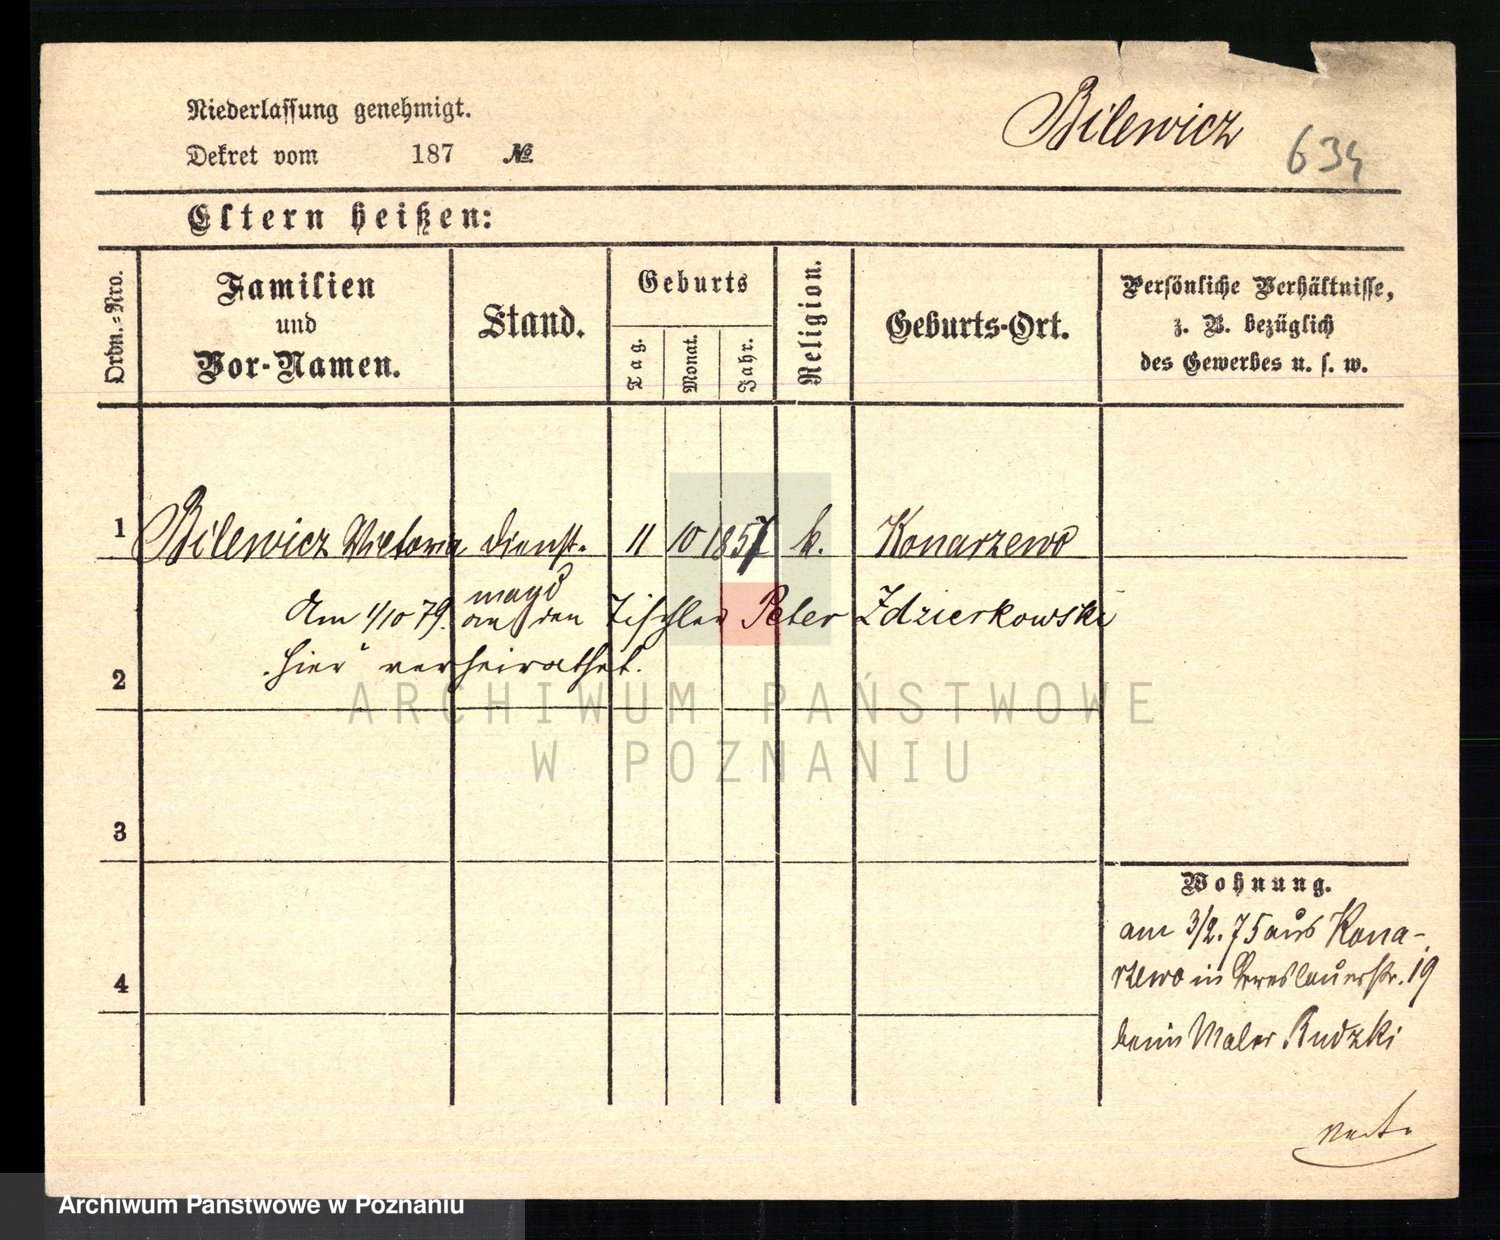 Niederlassung genehmigt.
Dekret vom 187 №
Bilewicz
634
Eltern heißen:
Ordn.-Nro.
Familien
und
Vor-Namen.
Stand.
Geburts
Tag.
Monat.
Jahr.
Religion.
Geburts-Ort.
Persönliche Verhältnisse,
z. B. bezüglich
des Gewerbes u. s. w.
1 Bilewicz Victoria Dienst- 11 10 1857 k. Konarzewo
magd
Am 1/10 79. an den Tischler Peter Zdzierkowski
hier verheirathet.
2
ARCHIWUM PAŃSTWOWE
W POZNANIU
3
Wohnung.
am 3/2. 75 aus Kona-
rzewo in Breslauerstr. 19
beim Maler Rudzki
4
vert.
Archiwum Państwowe w Poznaniu